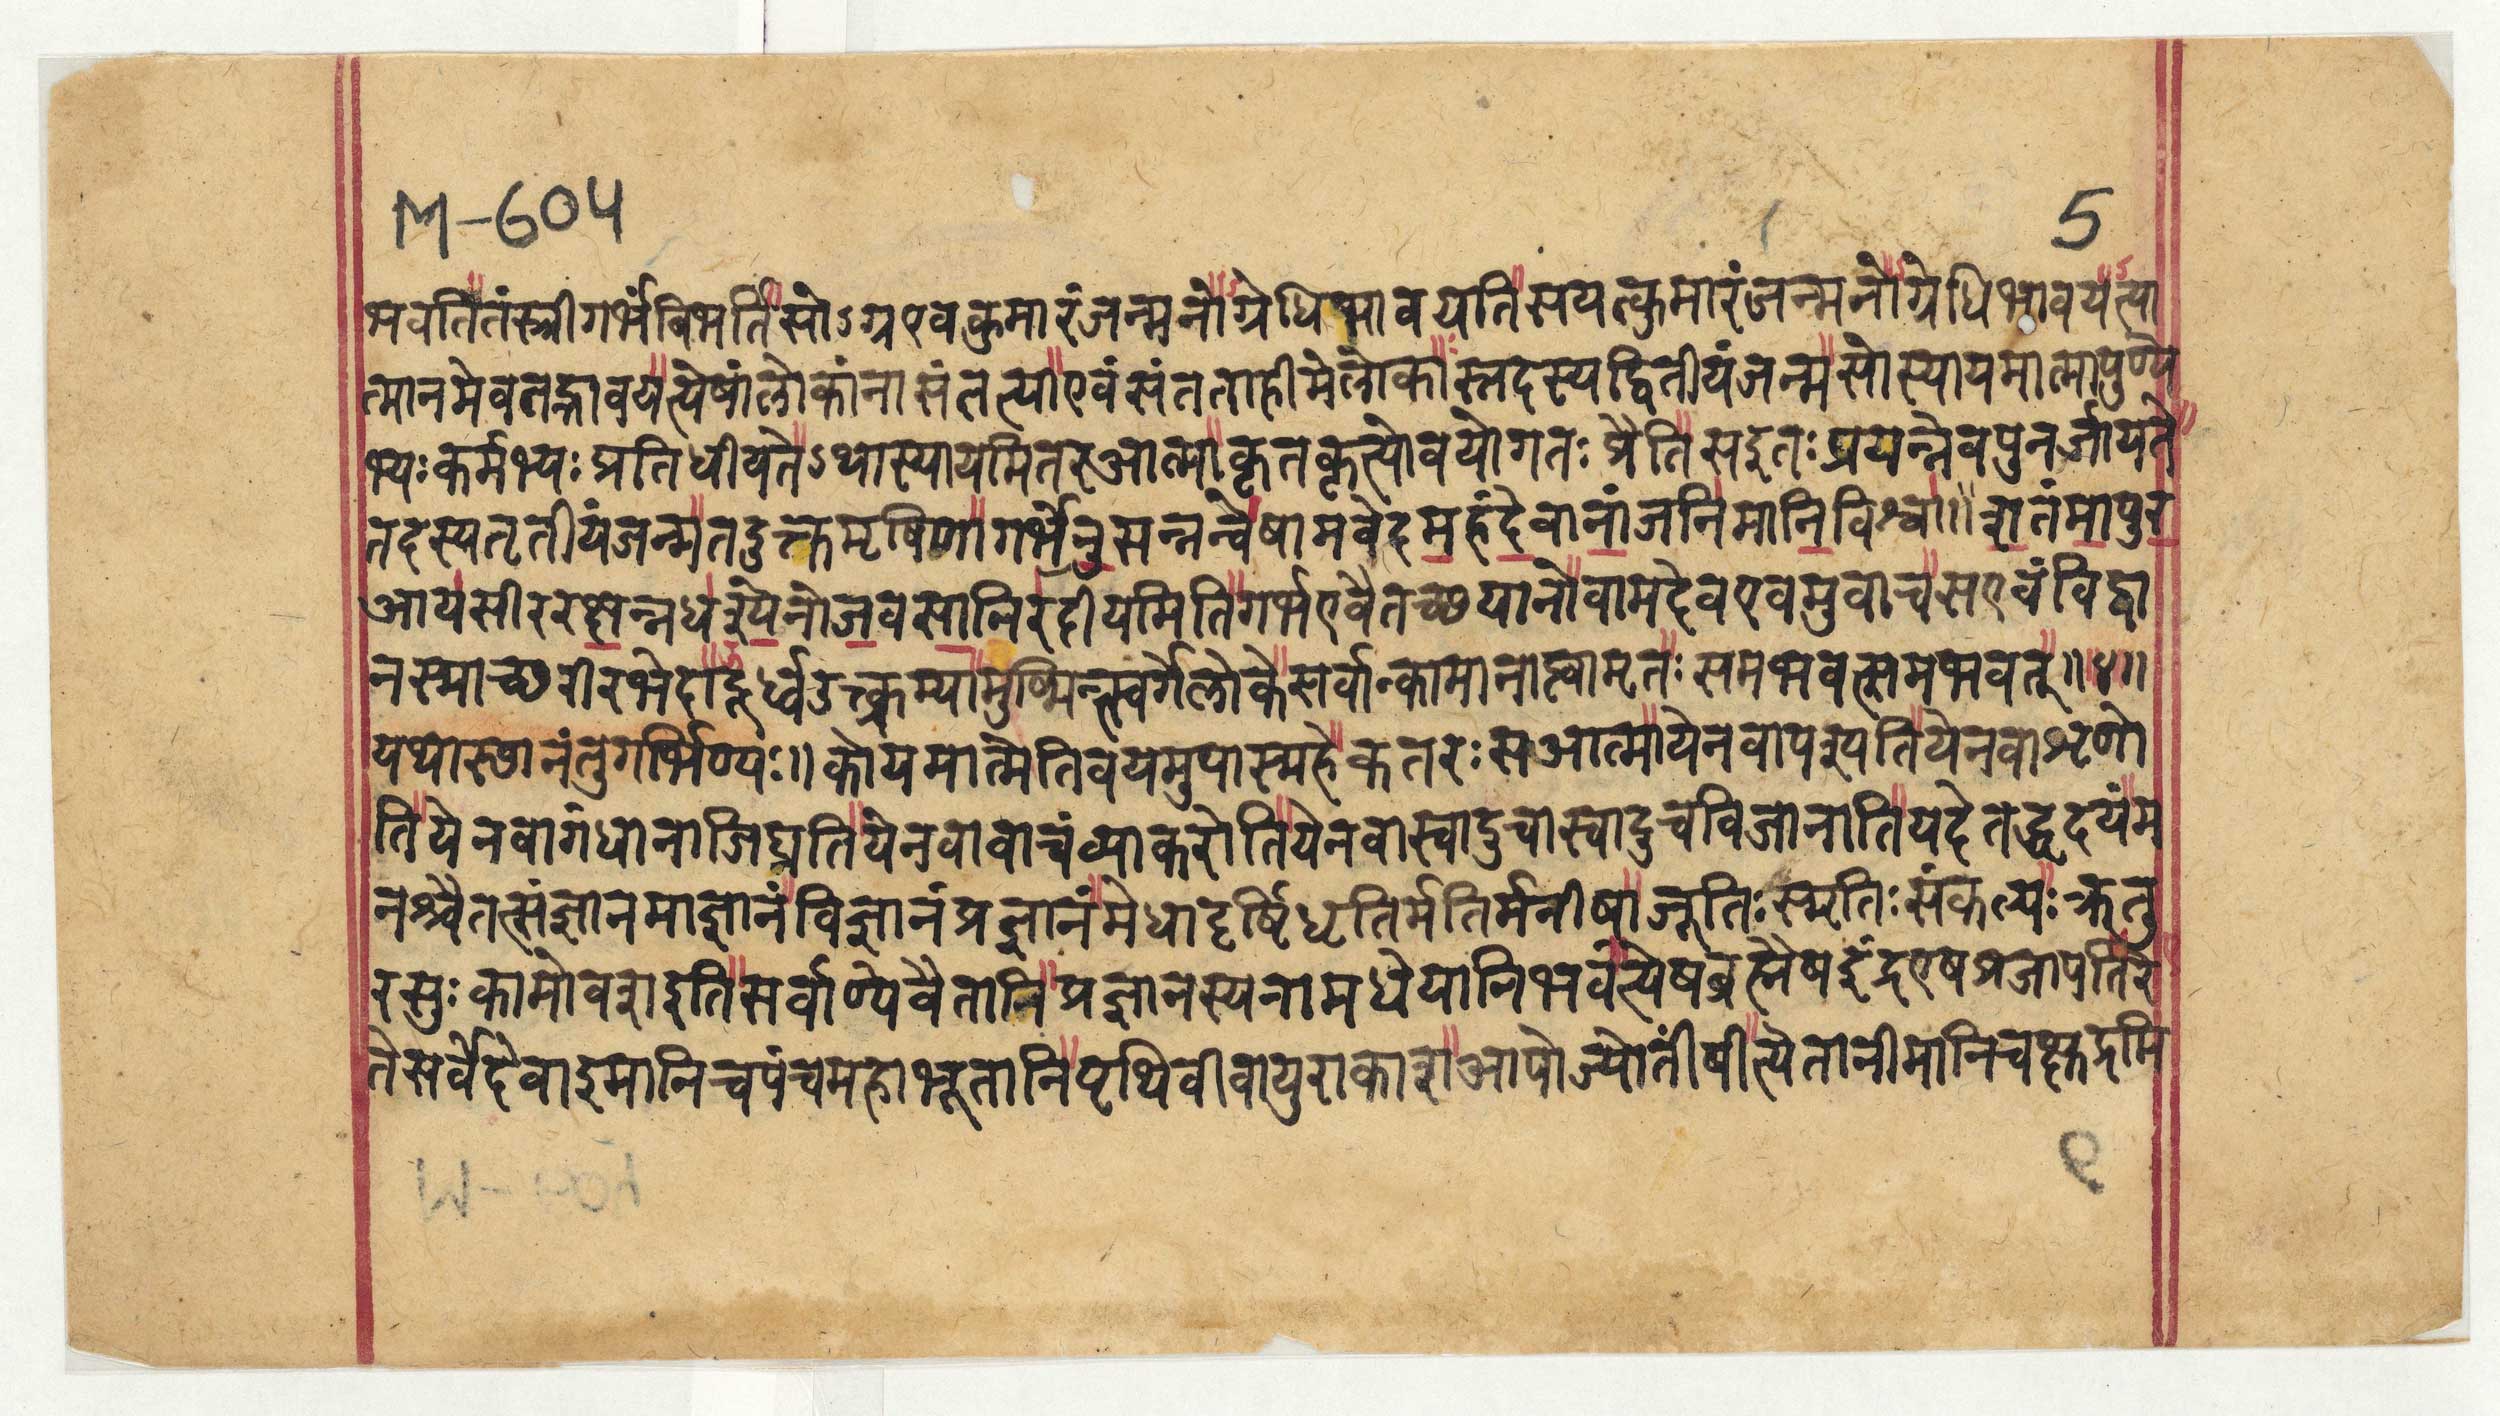 M-604 5
भवतितंस्त्रीगर्भंबिभर्तिसोऽग्रएवकुमारंजन्मनोग्रेधिभावयतिसयत्कुमारंजन्मनोग्रेधिभावयत्या
त्मानमेवतद्भावयत्येषांलोकांनासंतत्याएवंसंतताहीमेलोकास्तदस्यद्वितीयंजन्मसोस्यायमात्मापुण्ये
भ्यःकर्मभ्यःप्रतिधीयतेऽथास्यायमितरआत्माकृतकृत्योवयोगतःप्रैतिसइतःप्रयन्नेवपुनर्जायते
तदस्यतृतीयंजन्मतदुक्तमृषिणागर्भेनुसन्नन्वेषामवेदमहंदेवानांजनिमानिविश्वा॥शतंमापुर
आयसीररक्षन्नधश्येनोजवसानिरदीयमितिगर्भएवैतच्छयानोवामदेवएवमुवाचसएवंविद्वा
नस्माच्छरीरभेदादूर्ध्वउत्क्रम्यामुष्मिन्त्स्वर्गेलोकेसर्वान्कामानाप्त्वामृतःसमभवत्समभवत्॥४॥
यथास्थानंतुगर्भिण्यः॥कोयमात्मेतिवयमुपास्महेकतरःसआत्मायेनवापश्यतियेनवाशृणो
तियेनवागंधानाजिघ्रतियेनवावाचंव्याकरोतियेनवास्वादुचास्वादुचविजानातियदेतद्धृदयंम
नश्चैतत्संज्ञानमाज्ञानंविज्ञानंप्रज्ञानंमेधादृष्टिर्धृतिर्मतिर्मनीषाजूतिःस्मृतिःसंकल्पःक्रतु
रसुःकामोवशइतिसर्वाण्येवैतानिप्रज्ञानस्यनामधेयानिभवंत्येषब्रह्मैषइंद्रएषप्रजापतिरे
तेसर्वेदेवाइमानिचपंचमहाभूतानिपृथिवीवायुराकाशआपोज्योतींषीत्येतानीमानिचक्षुद्रमि